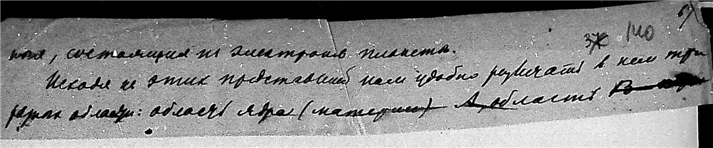 140
ния, состоящия из электронов планеты.
Исходя из этих представлений нам удобно различать в нем три
разных области: область ядра (материи) область